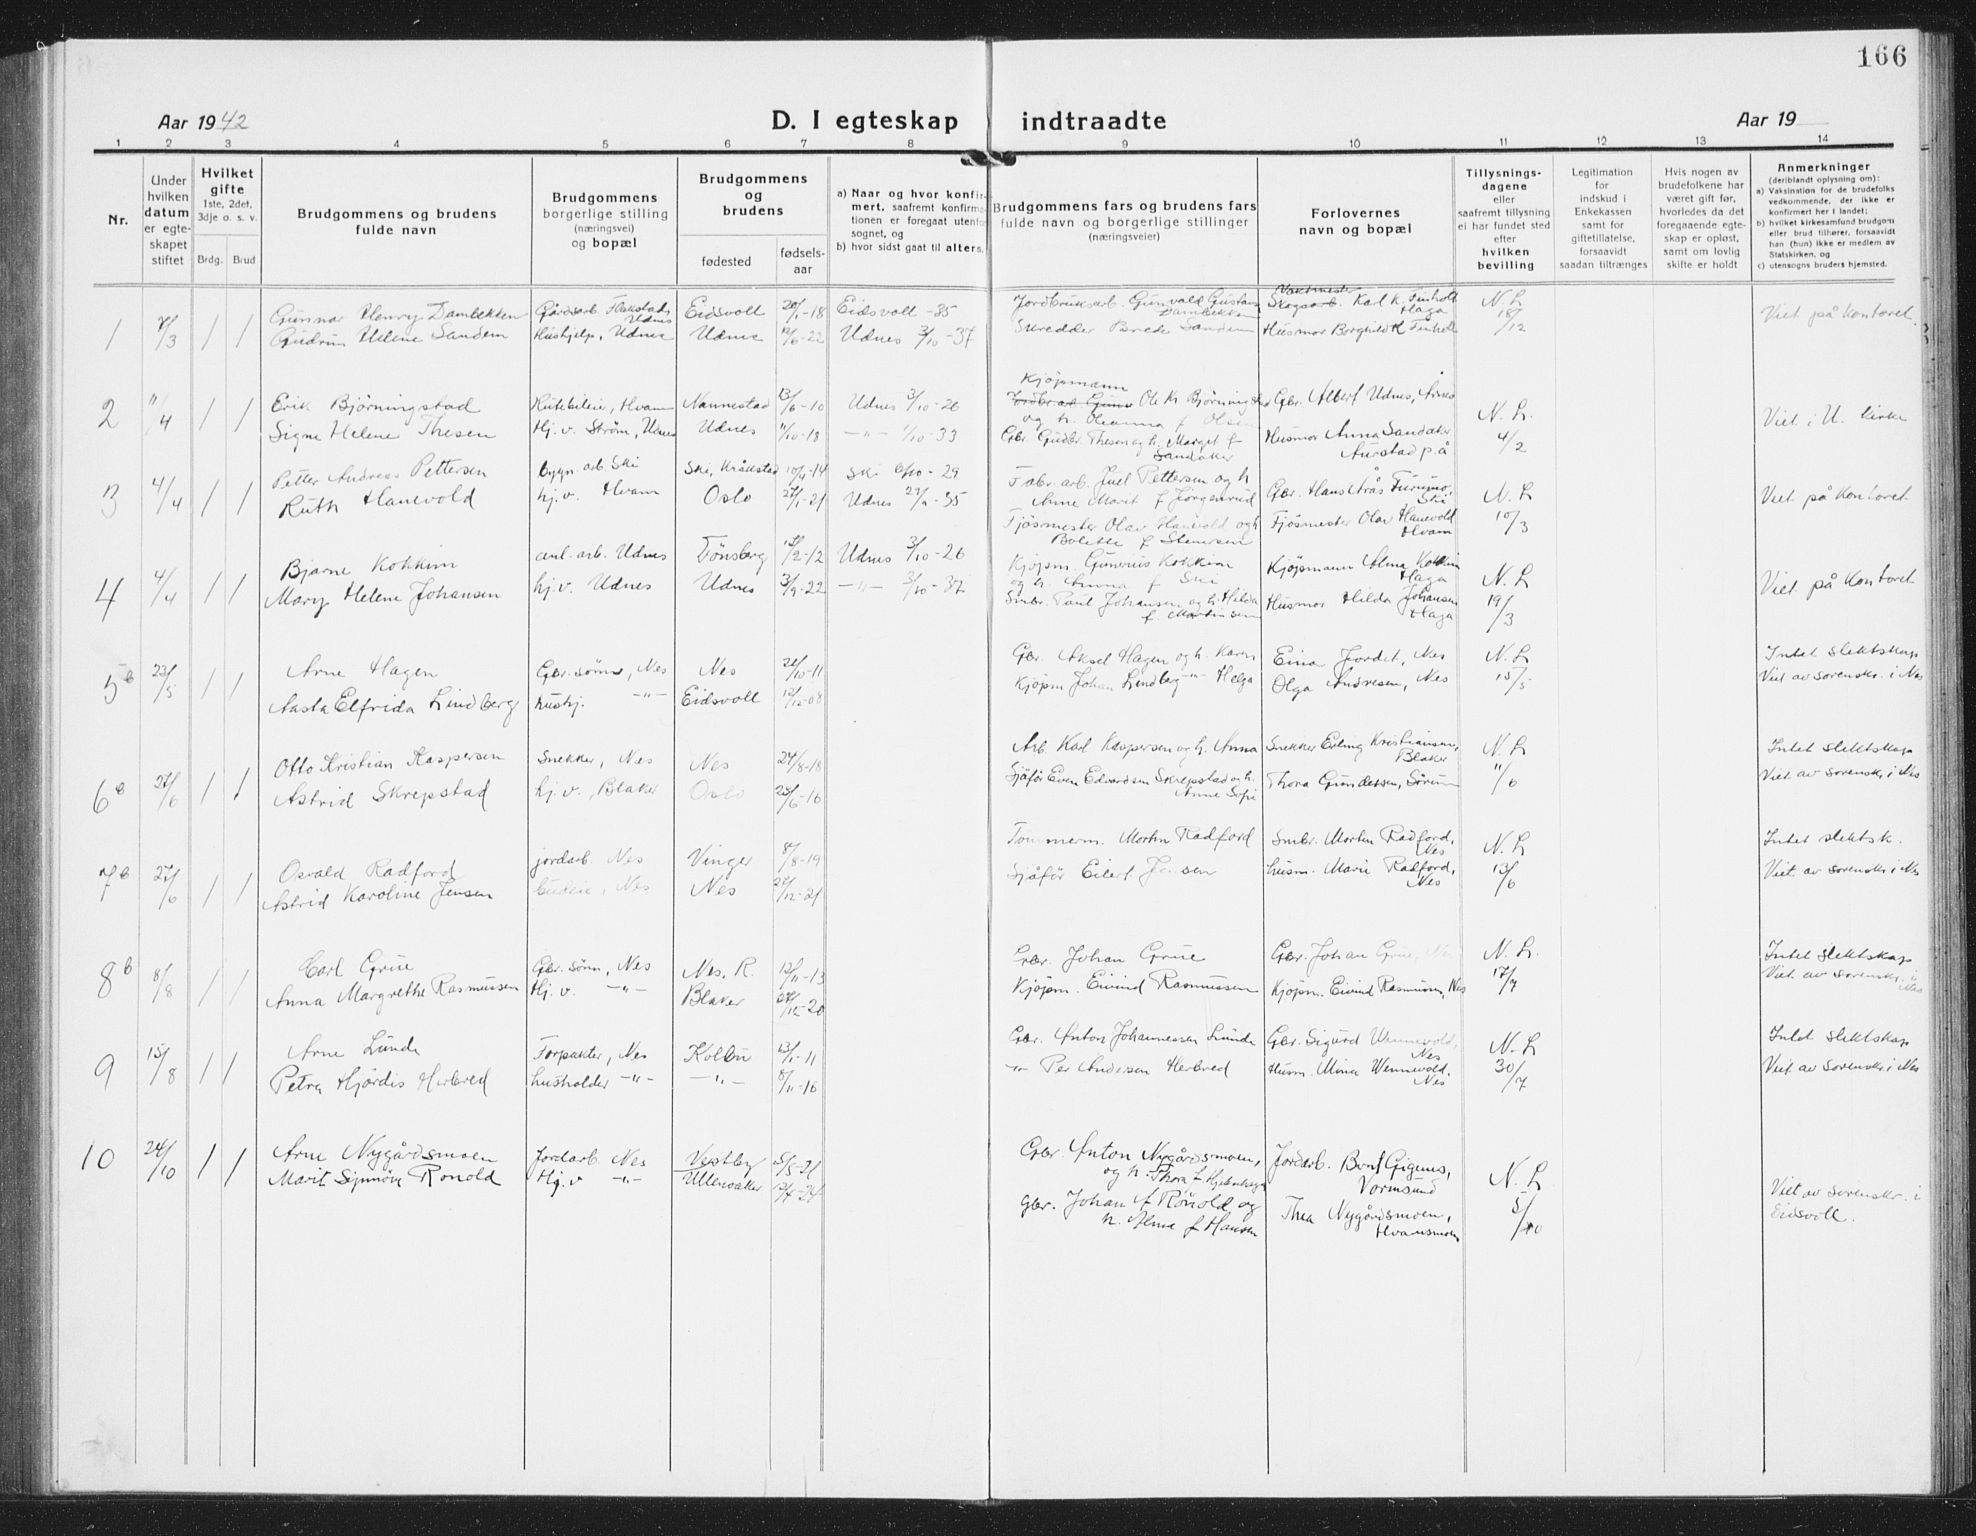 166
Aar 1942
D. I egteskap indtraadte
Aar 19
1 2 3 4 5 6 7 8 9 10 11 12 13 14
Nr.
Under hvilken datum er egteskapet stiftet
Hvilket gifte 1ste, 2det, 3dje o. s. v.
Brdg. Brud
Brudgommens og brudens fulde navn
Brudgommens borgerlige stilling (næringsvei) og bopæl
Brudgommens og brudens
fødested
fødsels-aar
a) Naar og hvor konfirmert, saafremt konfirmationen er foregaat utenfor sognet, og
b) hvor sidst gaat til alters.
Brudgommens fars og brudens fars fulde navn og borgerlige stillinger (næringsveier)
Forlovernes navn og bopæl
Tillysnings-dagene eller saafremt tillysning ei har fundet sted efter hvilken bevilling
Legitimation for indskud i Enkekassen samt for giftetillatelse, forsaavidt saadan tiltrænges
Hvis nogen av brudefolkene har været gift før, hvorledes da det foregaaende egteskap er opløst, samt om lovlig skifte er holdt
Anmerkninger (deriblandt oplysning om):
a) Vaksination for de brudefolks vedkommende, der ikke er konfirmert her i landet;
b) hvilket kirkesamfund brudgom eller brud tilhører, forsaavidt han (hun) ikke er medlem av Statskirken, og
c) utensogns bruders hjemsted.
1 7/3 1 1
Gunnar Henry Dambekken Gårdsarb. Flakstad, Udnes Eidsvoll 20/1-18 Eidsvoll -35 Jordbruksarb. Gunvald Gustav Dambekken Vaktmester Skogsarb. Karl K. Finholt Haga N. L. 18/12 Viet på kontoret.
Gudrun Helene Sandem Hushjelp, Udnes Udnes 19/6-22 Udnes 3/10-37 Skredder Brede Sandem Husmor Borghild K Finholt
2 11/4 1 1
Erik Bjørningstad Rutebileie, Hvam Nannestad 13/6-10 Udnes 3/10-26 Kjøpmann Ole Kr Bjørningstad og h. Oleanna f Olsen Gbr. Albert Udnes, Årnes N. L. 4/2 Viet i U. kirke
Signe Helene Thesen Hj. v. Strøm, Udnes Udnes 11/10-18 -"- 1/10-33 Gbr. Gudbr. Thesen og h. Margit f Sandaker Husmor Anna Sandaker Aurstad p.å
3 4/4 1 1
Petter Andreas Pettersen bygn.arb. Ski Ski, Kråkstad 10/4-14 Ski 6/10-29 Fabr. arb. Juel Pettersen og h Anne Marit f Jörgenrud Gbr. Hans Aras Furumo, Ski N. L. 10/3 Viet på kontoret
Ruth Hanevold hj. v. Hvam Oslo 27/1-21 Udnes 29/9-35 Fjösmester Olav Hanevold og h Bolette f Stenersen Fjösmester Olav Hanevold Hvam
4 4/4 1 1
Bjarne Kokkim anl. arb. Udnes Tönsberg 18/2-12 Udnes 3/10-26 Kjøpm. Gunerius Kokkim og h. Anna f Ski Kjøpmann Alma Kokkim Haga N. L. 19/3 Viet på kontoret
Mary Helene Johansen hj. v. Udnes Udnes 3/9-22 -"- 3/10-37 Smbr. Paul Johansen og h. Hilda f. Martinsen Husmor Hilda Johansen Haga
5b 23/5 1 1
Arne Hagen Gbr.sønn, Nes Nes 21/10-11 Gbr. Aksel Hagen og h. Karen Eina Jordet, Nes N. L. 15/5 Intet slektskap
Aasta Elfrida Lindberg hushj. -"- Eidsvoll 12/12-08 Kjøpm Johan Lindberg -"- Helga Olga Andresen, Nes Viet av sorenskr. i Nes
6b 27/6 1 1
Otto Kristian Kaspersen Snekker, Nes Nes 24/8-18 Arb. Karl Kaspersen og h. Anna Snekker Erling Kristiansen, Blaker N. L. 11/6 Intet slektskap
Astrid Skrepstad hj. v., Blaker Oslo 25/6-16 Sjåfør Even Edvardsen Skrepstad og h. Anne Sofi Thora Gundersen, Sørum Viet av sorenskr. i Nes
7b 27/6 1 1
Osvald Radford jordarb. Nes Vinger 8/8-19 Tømmerm. Morten Radford Smbr. Morten Radford, Nes N. L. 13/6 Intet slektsk.
Astrid Karoline Jensen budeie, Nes Nes 27/12-21 Sjåför Eilert Jensen husm. Marie Radford, Nes Viet av sorenskr. i Nes
8b 8/8 1 1
Carl Grue Gbr. sønn, Nes Nes, R. 12/11-13 Gbr. Johan Grue Gbr. Johan Grue, Nes N. L. 17/7 Intet slektskap
Anna Margrethe Rasmussen Hj. v. -"- Blaker 27/12-20 Kjøpm. Eivind Rasmussen Kjøpm. Eivind Rasmussen, Nes Viet av sorenskr. i Nes
9 15/8 1 1
Arne Lunde Forpakter, Nes Kolbu 13/1-11 Gbr. Anton Johannessen Lunde Gbr. Sigurd Wennevold, Nes N. L. 30/7 Intet slektskap
Petra Hjördis Herbred husholder -"- -"- 8/11-16 -"- Per Andersen Herbred Husm. Mina Wennevold, Nes Viet av sorenskr. i Nes
10 24/10 1 1
Arne Nygårdsmoen Jordarb. Nes Vestby 5/5-21 Gbr. Anton Nygårdsmoen, og h. Thora f Hjelmhaga Jordarb. Vormsund N. L. 5/10 Viet av sorenskr. i Eidsvoll.
Marit Synnöve Rönold Hj. v -"- Ullensaker Gbr. Johan A Rönold og h. Alma f Hansen Thea Nygårdsmoen, Hvansmoen